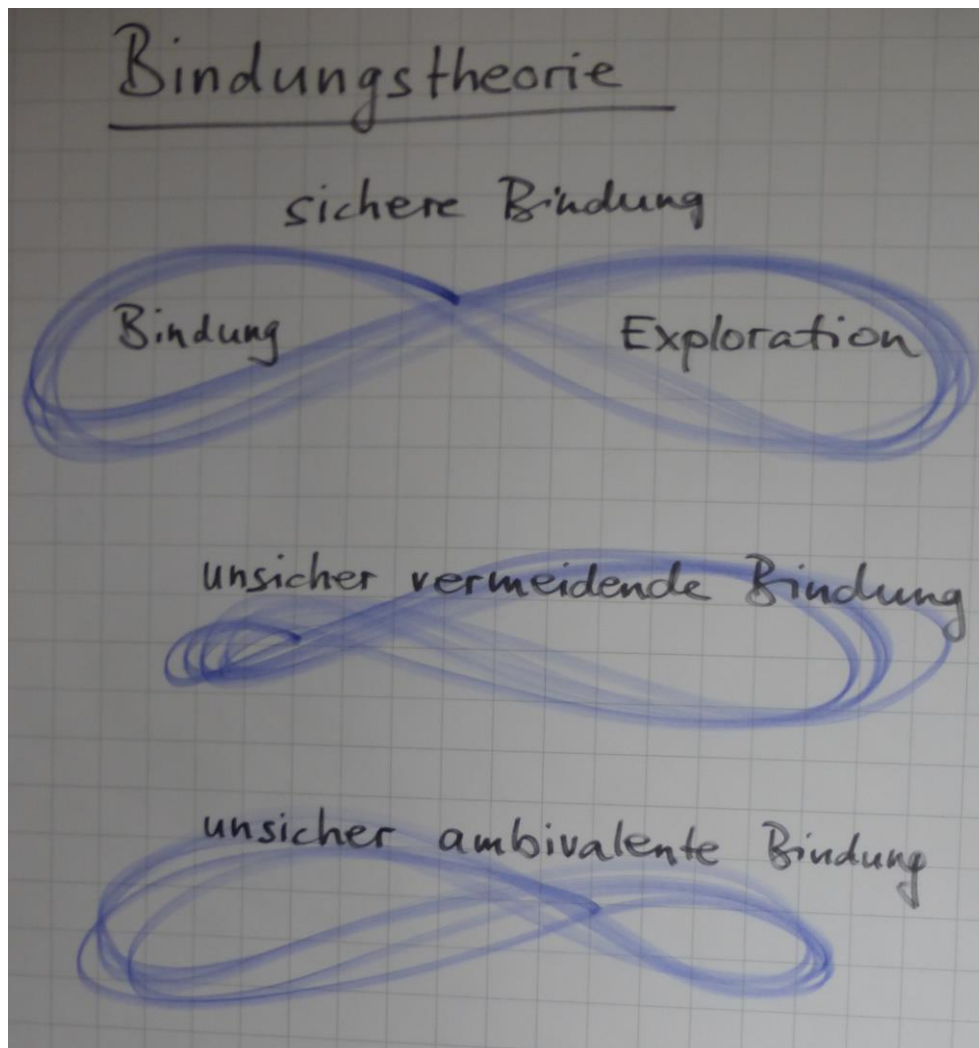 Bindungstheorie
sichere Bindung
Bindung Exploration
unsicher vermeidende Bindung
unsicher ambivalente Bindung